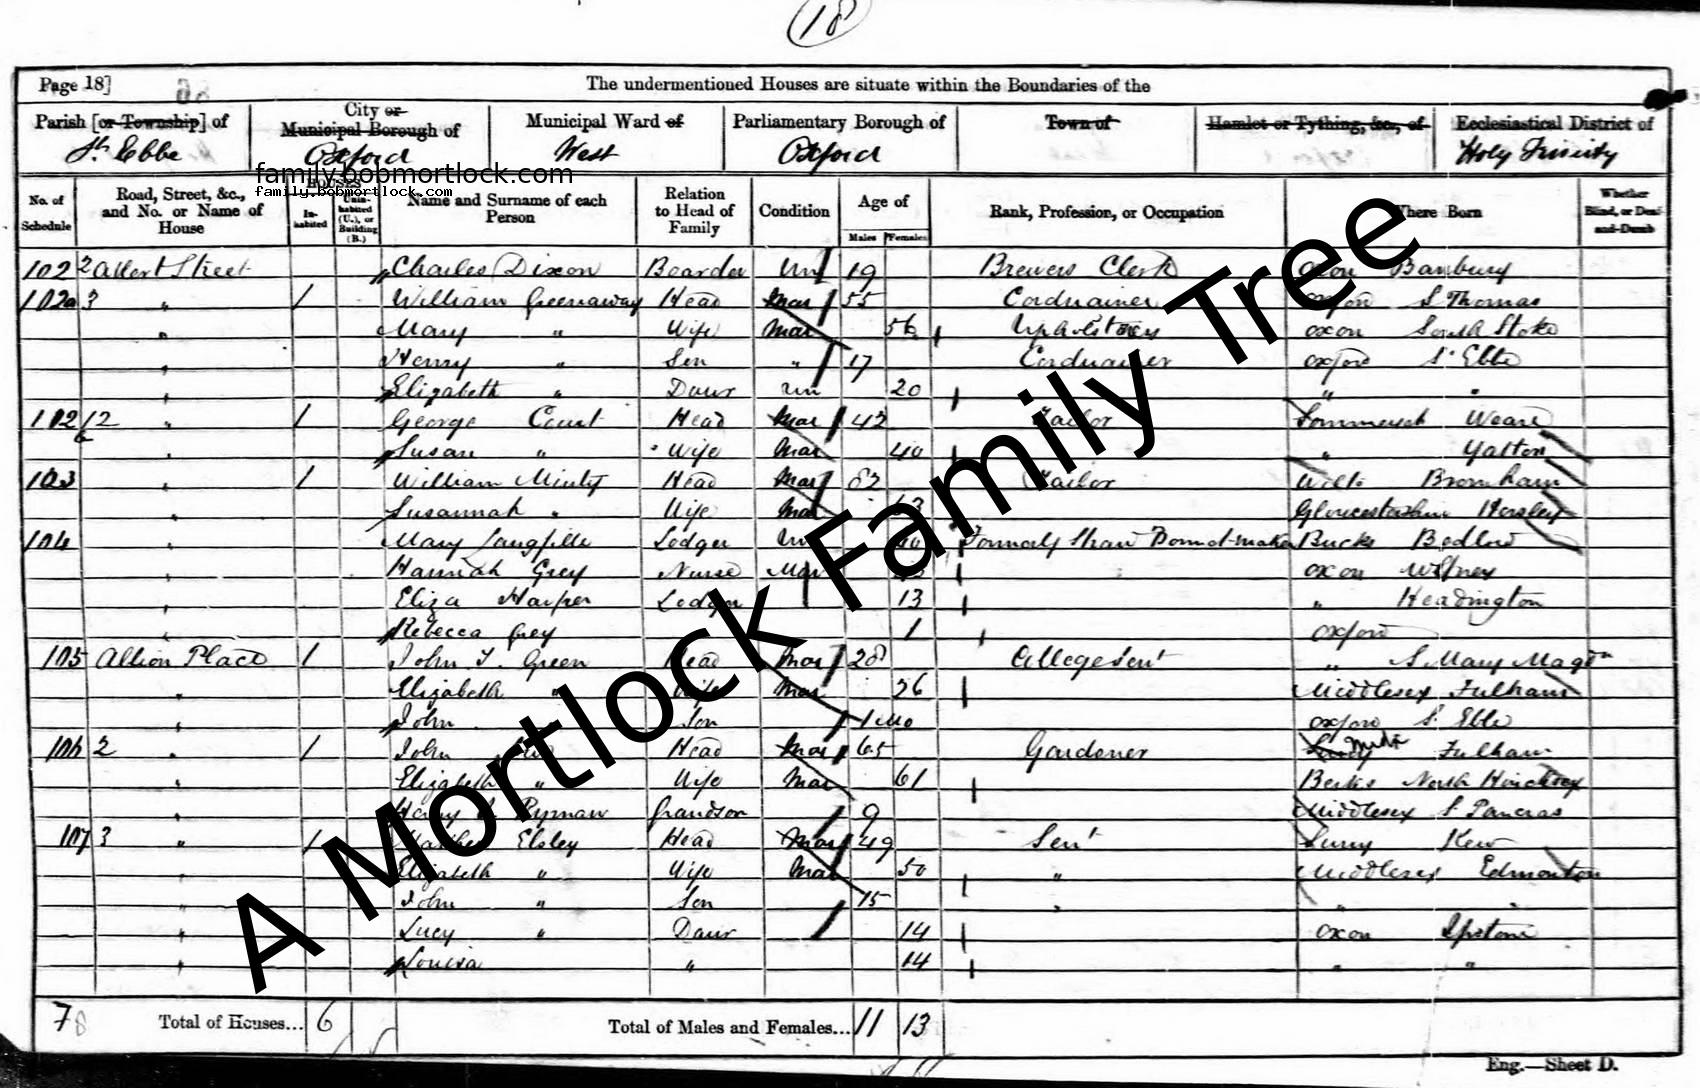 18
Page 18] The undermentioned Houses are situate within the Boundaries of the
Parish [or Township] of City or Municipal Borough of Municipal Ward of Parliamentary Borough of Town of Hamlet or Tything, &c., of Ecclesiastical District of
St. Ebbe Oxford West Oxford Holy Trinity
family.bopmortlock.com
family.bobmortlock.com
No. of Schedule Road, Street, &c., and No. or Name of House HOUSES In-habited Unin-habited (U.), or Building (B.) Name and Surname of each Person Relation to Head of Family Condition Age of Males Females Rank, Profession, or Occupation Where Born Whether Blind, or Deaf-and-Dumb
102 2 Albert Street Charles Dixon Boarder Un 19 Brewers Clerk Oxon Banbury
102a 3 " 1 William Greenaway Head Mar 55 Cordwainer Oxford St Thomas
" Mary " Wife Mar 56 Oxon South Stoke
" Henry " Son " 17 Cordwainer Oxford St Ebbe
" Elizabeth " Daur Un 20 " "
102 " 1 George Court Head Mar 42 Tailor Weare
" Susan " Wife Mar 40 " Yatton
103 " 1 William Minty Head Mar Tailor Wilts Bromham
" Susannah " Wife Mar Gloucestershire Horsley
104 " Mary Lodger Un Formerly Straw Bonnet-maker Bucks
" Hannah Grey Nurse Mar Oxon Witney
" Eliza Harper Lodger 13 " Headington
" Rebecca Grey 1 Oxford
105 Albion Place 1 John T. Green Head Mar 28 College Servt " St Mary Magdn
" Elizabeth " Wife Mar 26 Middlesex Fulham
" John Son 1 Mo Oxford St Ebbe
106 2 " 1 John Head Mar 65 Gardener Midx Fulham
" Elizabeth " Wife Mar 61 Berks North Hincksey
" Ryman Grandson 9 Middlesex St Pancras
107 3 " 1 Elsley Head Mar 49 Servt Surrey Kew
" Elizabeth " Wife Mar 50 " Middlesex Edmonton
" John " Son 15 " " "
" Lucy " Daur 14 Oxon Ipstone
" Louisa " 14 " "
78 Total of Houses... 6 Total of Males and Females... 11 13
Eng.—Sheet D.
A Mortlock Family Tree